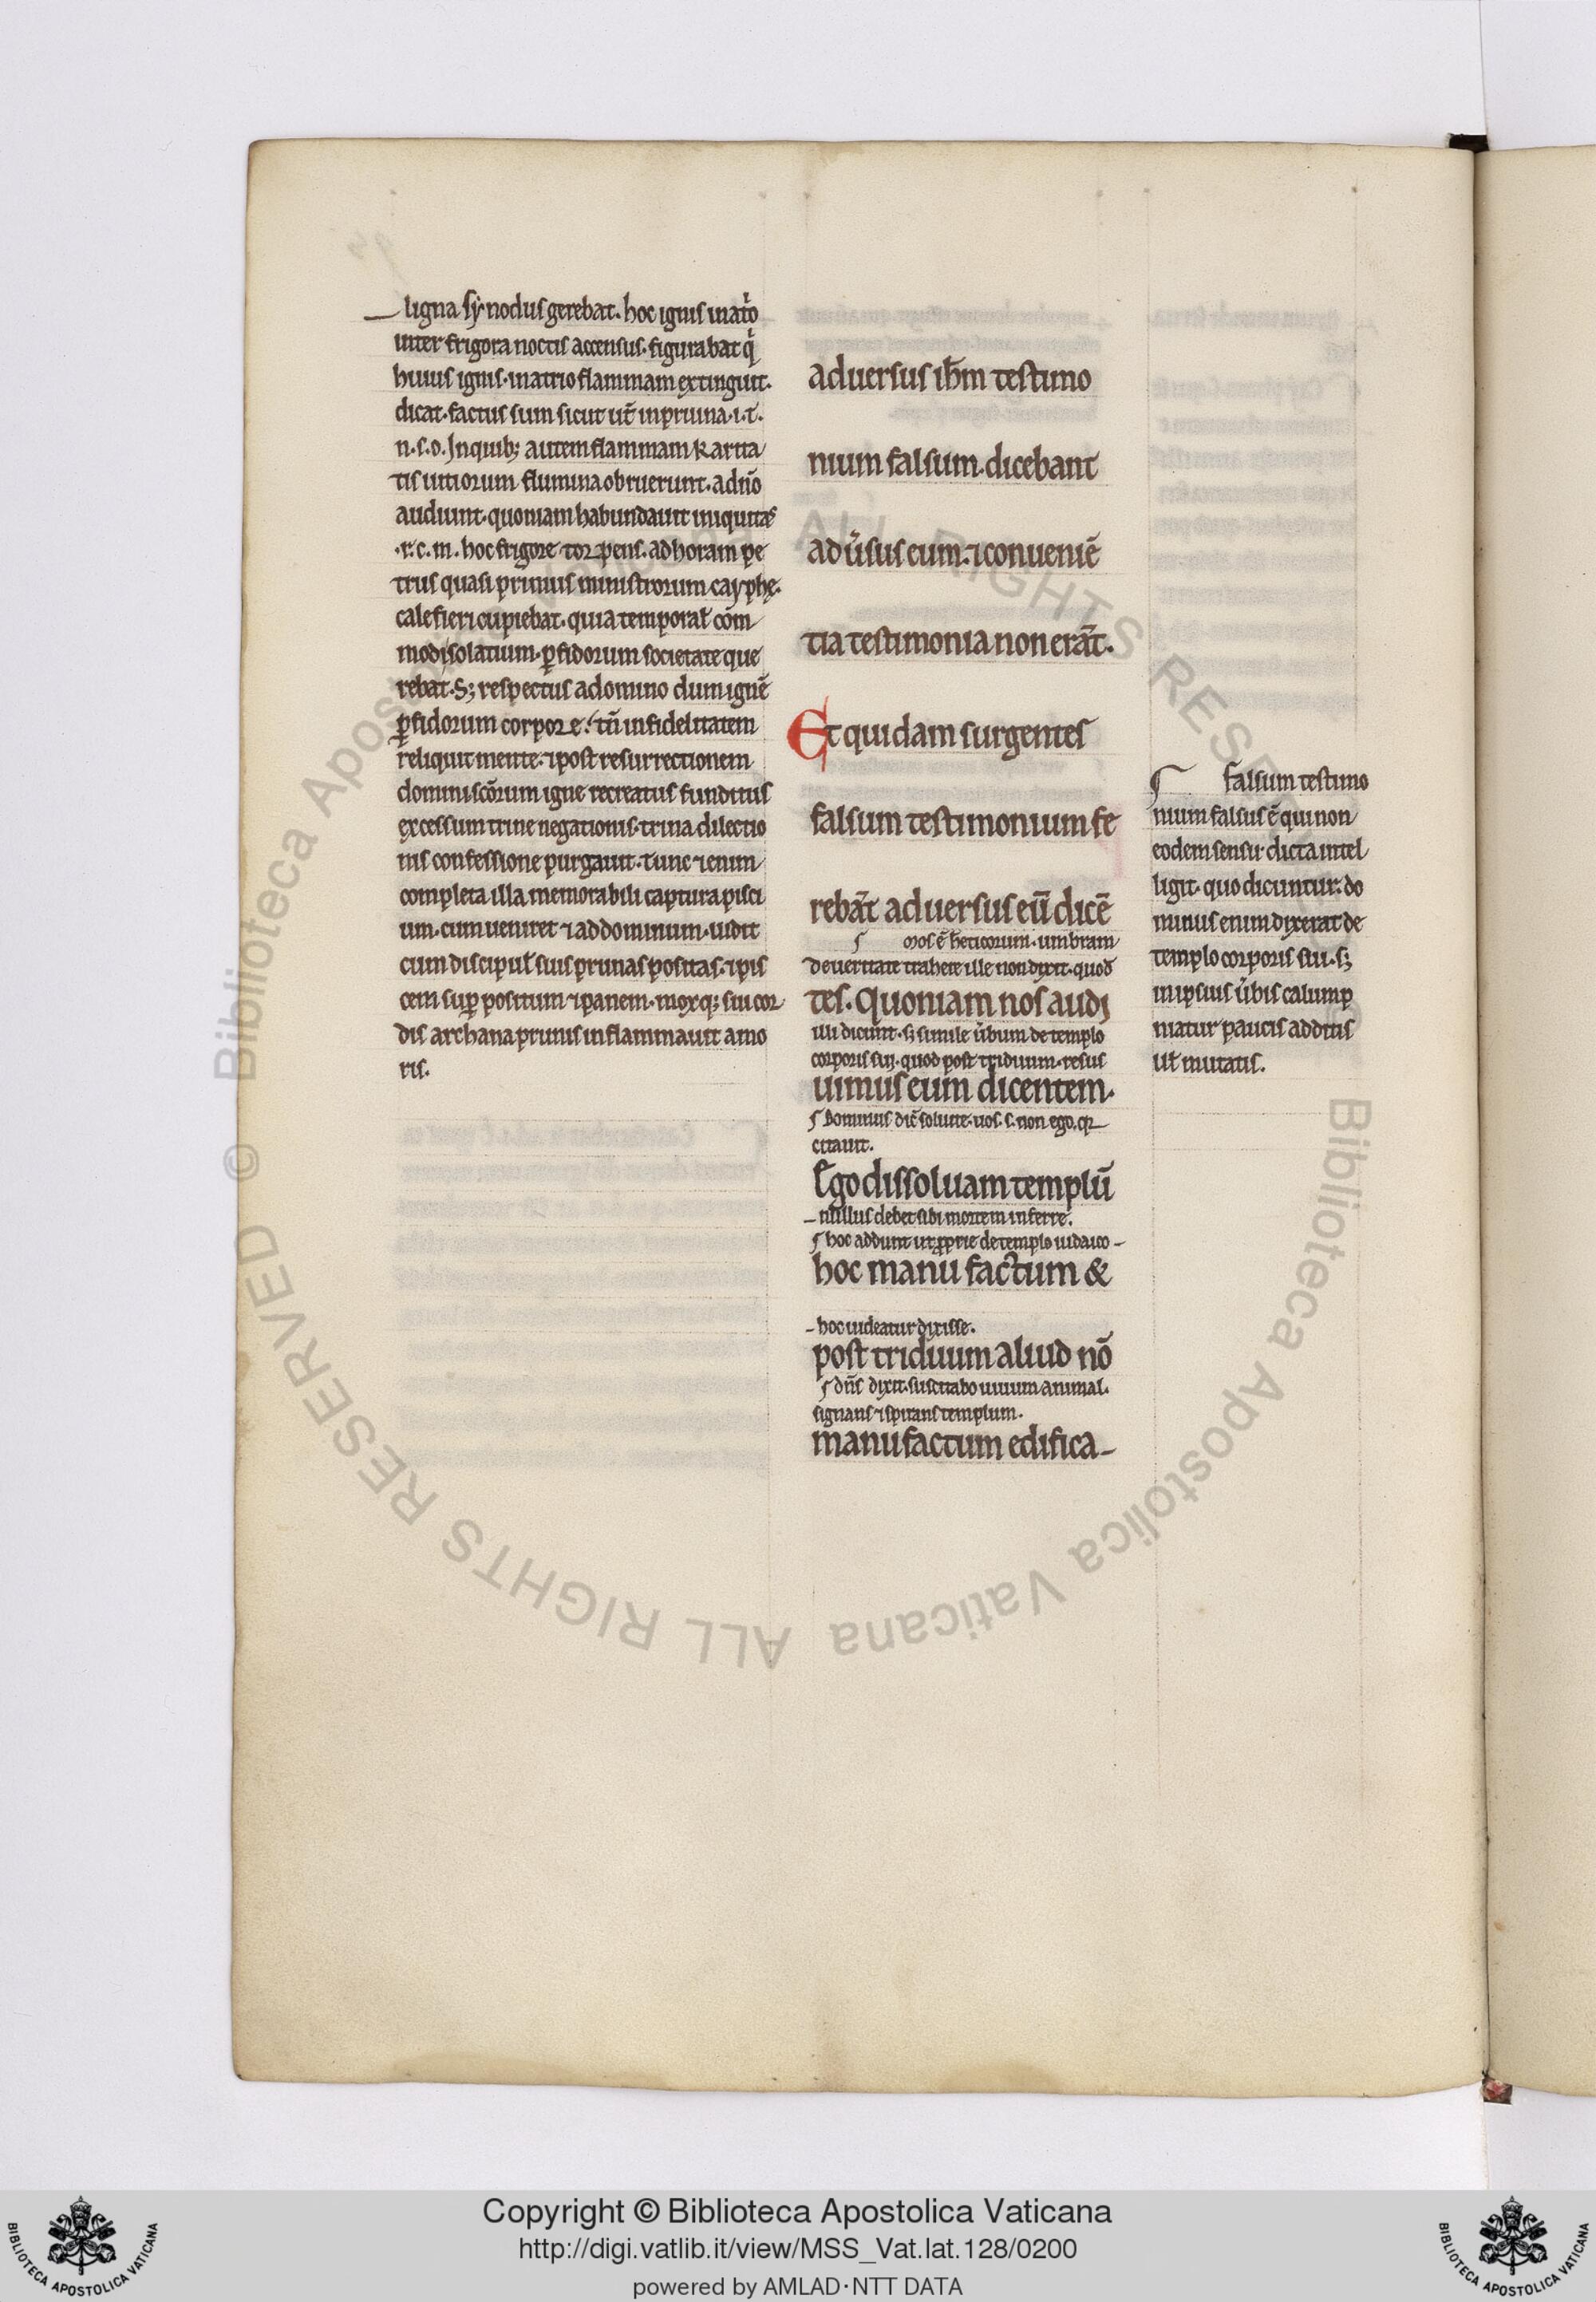 ligna synodus gerebat. hoc ignis inat̾o
inter frigora noctis accensus. figurabat q̾
huius ignis. in atrio flammam extinguit.
dicat. factus sum sicut ut̾ in pruina. i. t.
n. s. o. In quib; autem flammam karita
tis uitiorum flumina obruerunt. a dn̄o
audiunt. quoniam habundauit iniquitas
.r. c. m. hoc frigore torpens. ad horam pe
trus quasi primus ministrorum cayphę.
calefieri cupiebat. quia temporal̾ com
modi solatium. ꝑfidorum societate que
rebat. S; respectus a domino dum ignē
ꝑfidorum corpore. tn̄ infidelitatem
reliquit mente. ⁊ post resurrectionem
domini sc̄orum igne recreatus funditus
excessum trine negationis. trina dilectio
nis confessione purgauit. tunc ⁊enim
completa illa memorabili captura pisci
um. cum ueniret ⁊ ad dominum. uidit
cum discipul̾ suis prunas positas. ⁊ pis
cem suꝑ positum ⁊ panem. moxq; sui cor
dis archana prunis inflammauit amo
ris.
aduersus ih̄m testimo
nium falsum. dicebant
adu̾sus eum. ⁊ conueniē
tia testimonia non erāt.
Et quidam surgentes
falsum testimonium fe
rebāt aduersus eū dicē
mos ē h̾eticorum. umbram
de ueritate trahere ille non dixit. quod
tes. Quoniam nos audi
illi dicunt. s; simile u̾bum de templo
corporis sui. quod post triduum. resus
uimus eum dicentem.
Dominus dic̾ soluite. uos. s. non ego. qr
citauit.
Ego dissoluam templū
nullus debet sibi mortem inferre.
hoc addunt ut ꝓprie de templo iudaico
hoc manu factum &
hoc uideatur dixisse.
post triduum aliud nō
dn̄s dixit. suscitabo uiuum animal.
signans ⁊ spirans templum.
manufactum edifica
falsum testimo
nium falsus ē qui non
eodem sensu dicta intel
ligit. quo dicuntur. do
minus enim dixerat de
templo corporis sui. s;
in ipsius u̾bis calump
niatur paucis additis
ul̾ mutatis.
© Biblioteca Apostolica Vaticana ALL RIGHTS RESERVED
© Biblioteca Apostolica Vaticana ALL RIGHTS RESERVED
Copyright © Biblioteca Apostolica Vaticana
http://digi.vatlib.it/view/MSS_Vat.lat.128/0200
powered by AMLAD·NTT DATA
BIBLIOTECA APOSTOLICA VATICANA
BIBLIOTECA APOSTOLICA VATICANA